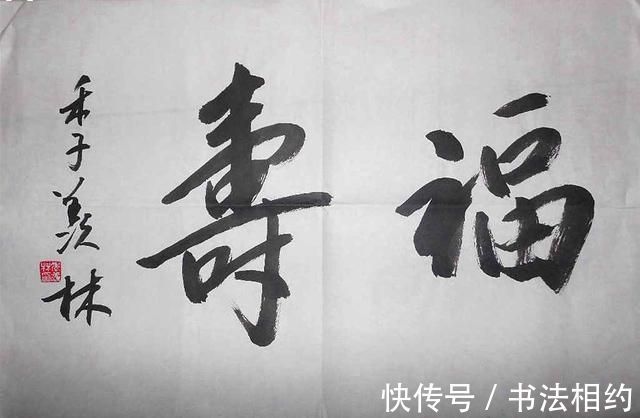 福壽
季羡林
快传号 / 书法相约